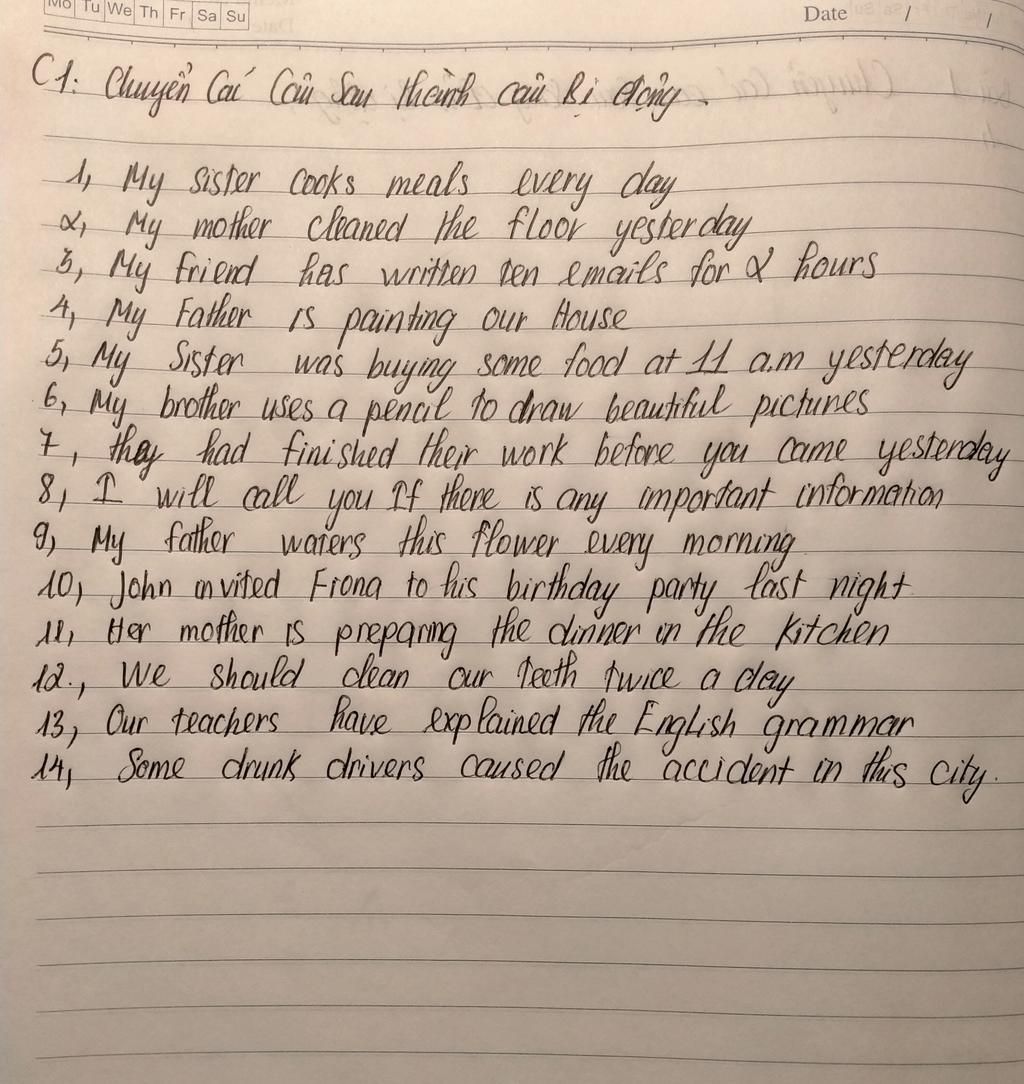 Mo Tu We Th Fr Sa Su
Date / /
C1: Chuyển Cá Câu Sau thành câu Bị động.
1, My sister cooks meals every day
2, My mother cleaned the floor yesterday
3, My friend has written ten emails for 2 hours
4, My Father is painting our House
5, My Sister was buying some food at 11 a.m yesterday
6, My brother uses a pencil to draw beautiful pictures
7, they had finished their work before you came yesterday
8, I will call you If there is any important information
9, My father waters this flower every morning
10, John invited Fiona to his birthday party last night
11, Her mother is preparing the dinner in the Kitchen
12., We should clean our teeth twice a day
13, Our teachers have explained the English grammar
14, Some drunk drivers caused the accident in this city.